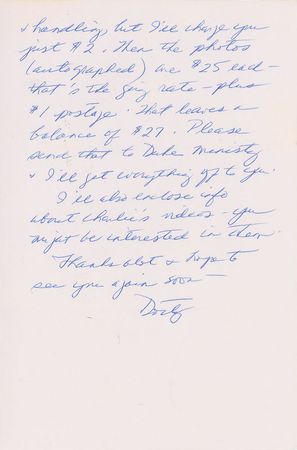 & handling, but I'll charge you
just $2. Then the photos
(autographed) are $25 each –
that's the going rate – plus
$1 postage. That leaves a
balance of $27. Please
send that to Duke Ministry
& I'll get everything off to you.
I'll also enclose info
about Charlie's videos – you
might be interested in them.
Thanks alot & hope to
see you again soon –